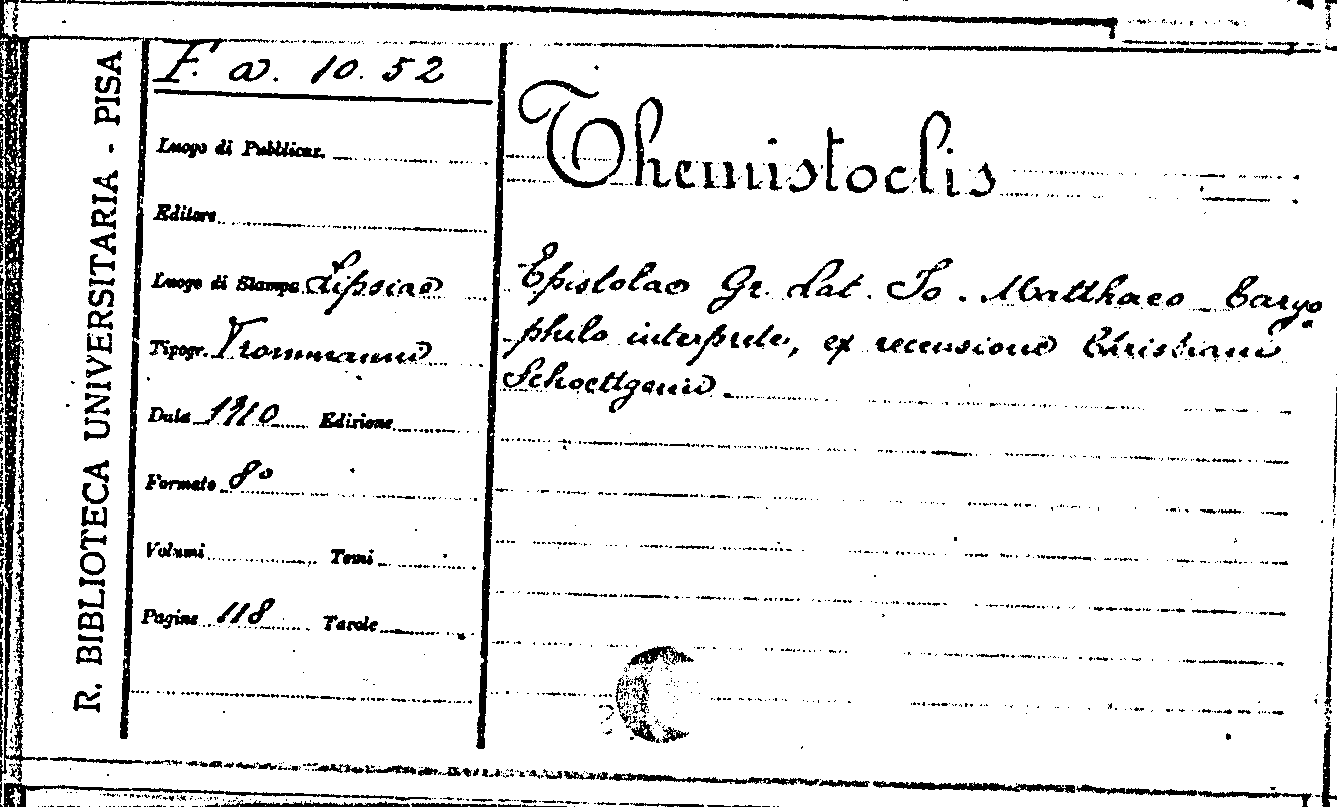 R. BIBLIOTECA UNIVERSITARIA - PISA
F. a. 10. 52
Luogo di Pubblicaz.
Editore
Luogo di Stampa Lipsiae
Tipogr. Trommanni
Data 1710 Edizione
Formato 8º
Volumi Tomi
Pagine 118 Tavole
Themistoclis
Epistolae Gr. Lat. Io. Matthaeo Caryo
philo interprete, ex recensione Christiani
Schoettgenii